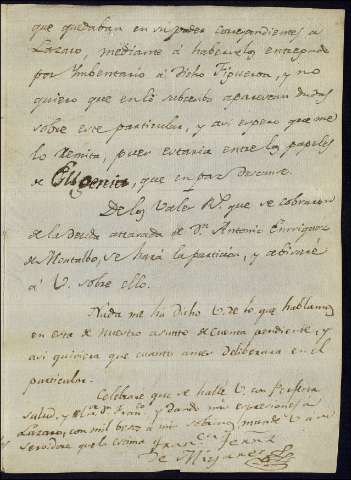 que quedaban en su poder correspondientes a
Lázaro, mediante á haberselos entregado
por Imbentario á Dicho Figueroa, y no
quiero que en lo subcesibo aparezcan dudas
sobre este particular, y asi espero que me
lo remita, pues estaria entre los papeles
de Eugenia, que en paz descanse.
De los Vales Rs. que se cobraron
de la deuda atrasada de Dn. Antonio Enrriquez
de Montalbo, se hará la particion, y abisaré
á V. sobre ello.
Nada me ha dicho V. de lo que hablamos
en esta de nuestro asunto de cuenta pendiente, y
asi quisiera que cuanto antes deliberara en el
particular.
Celebrare que se halle V. con perfecta
salud, y dando mis expresiones á
Lazaro, con mil besos á mis sobrinos mande V. a su
servidora que le estima
de Mijares